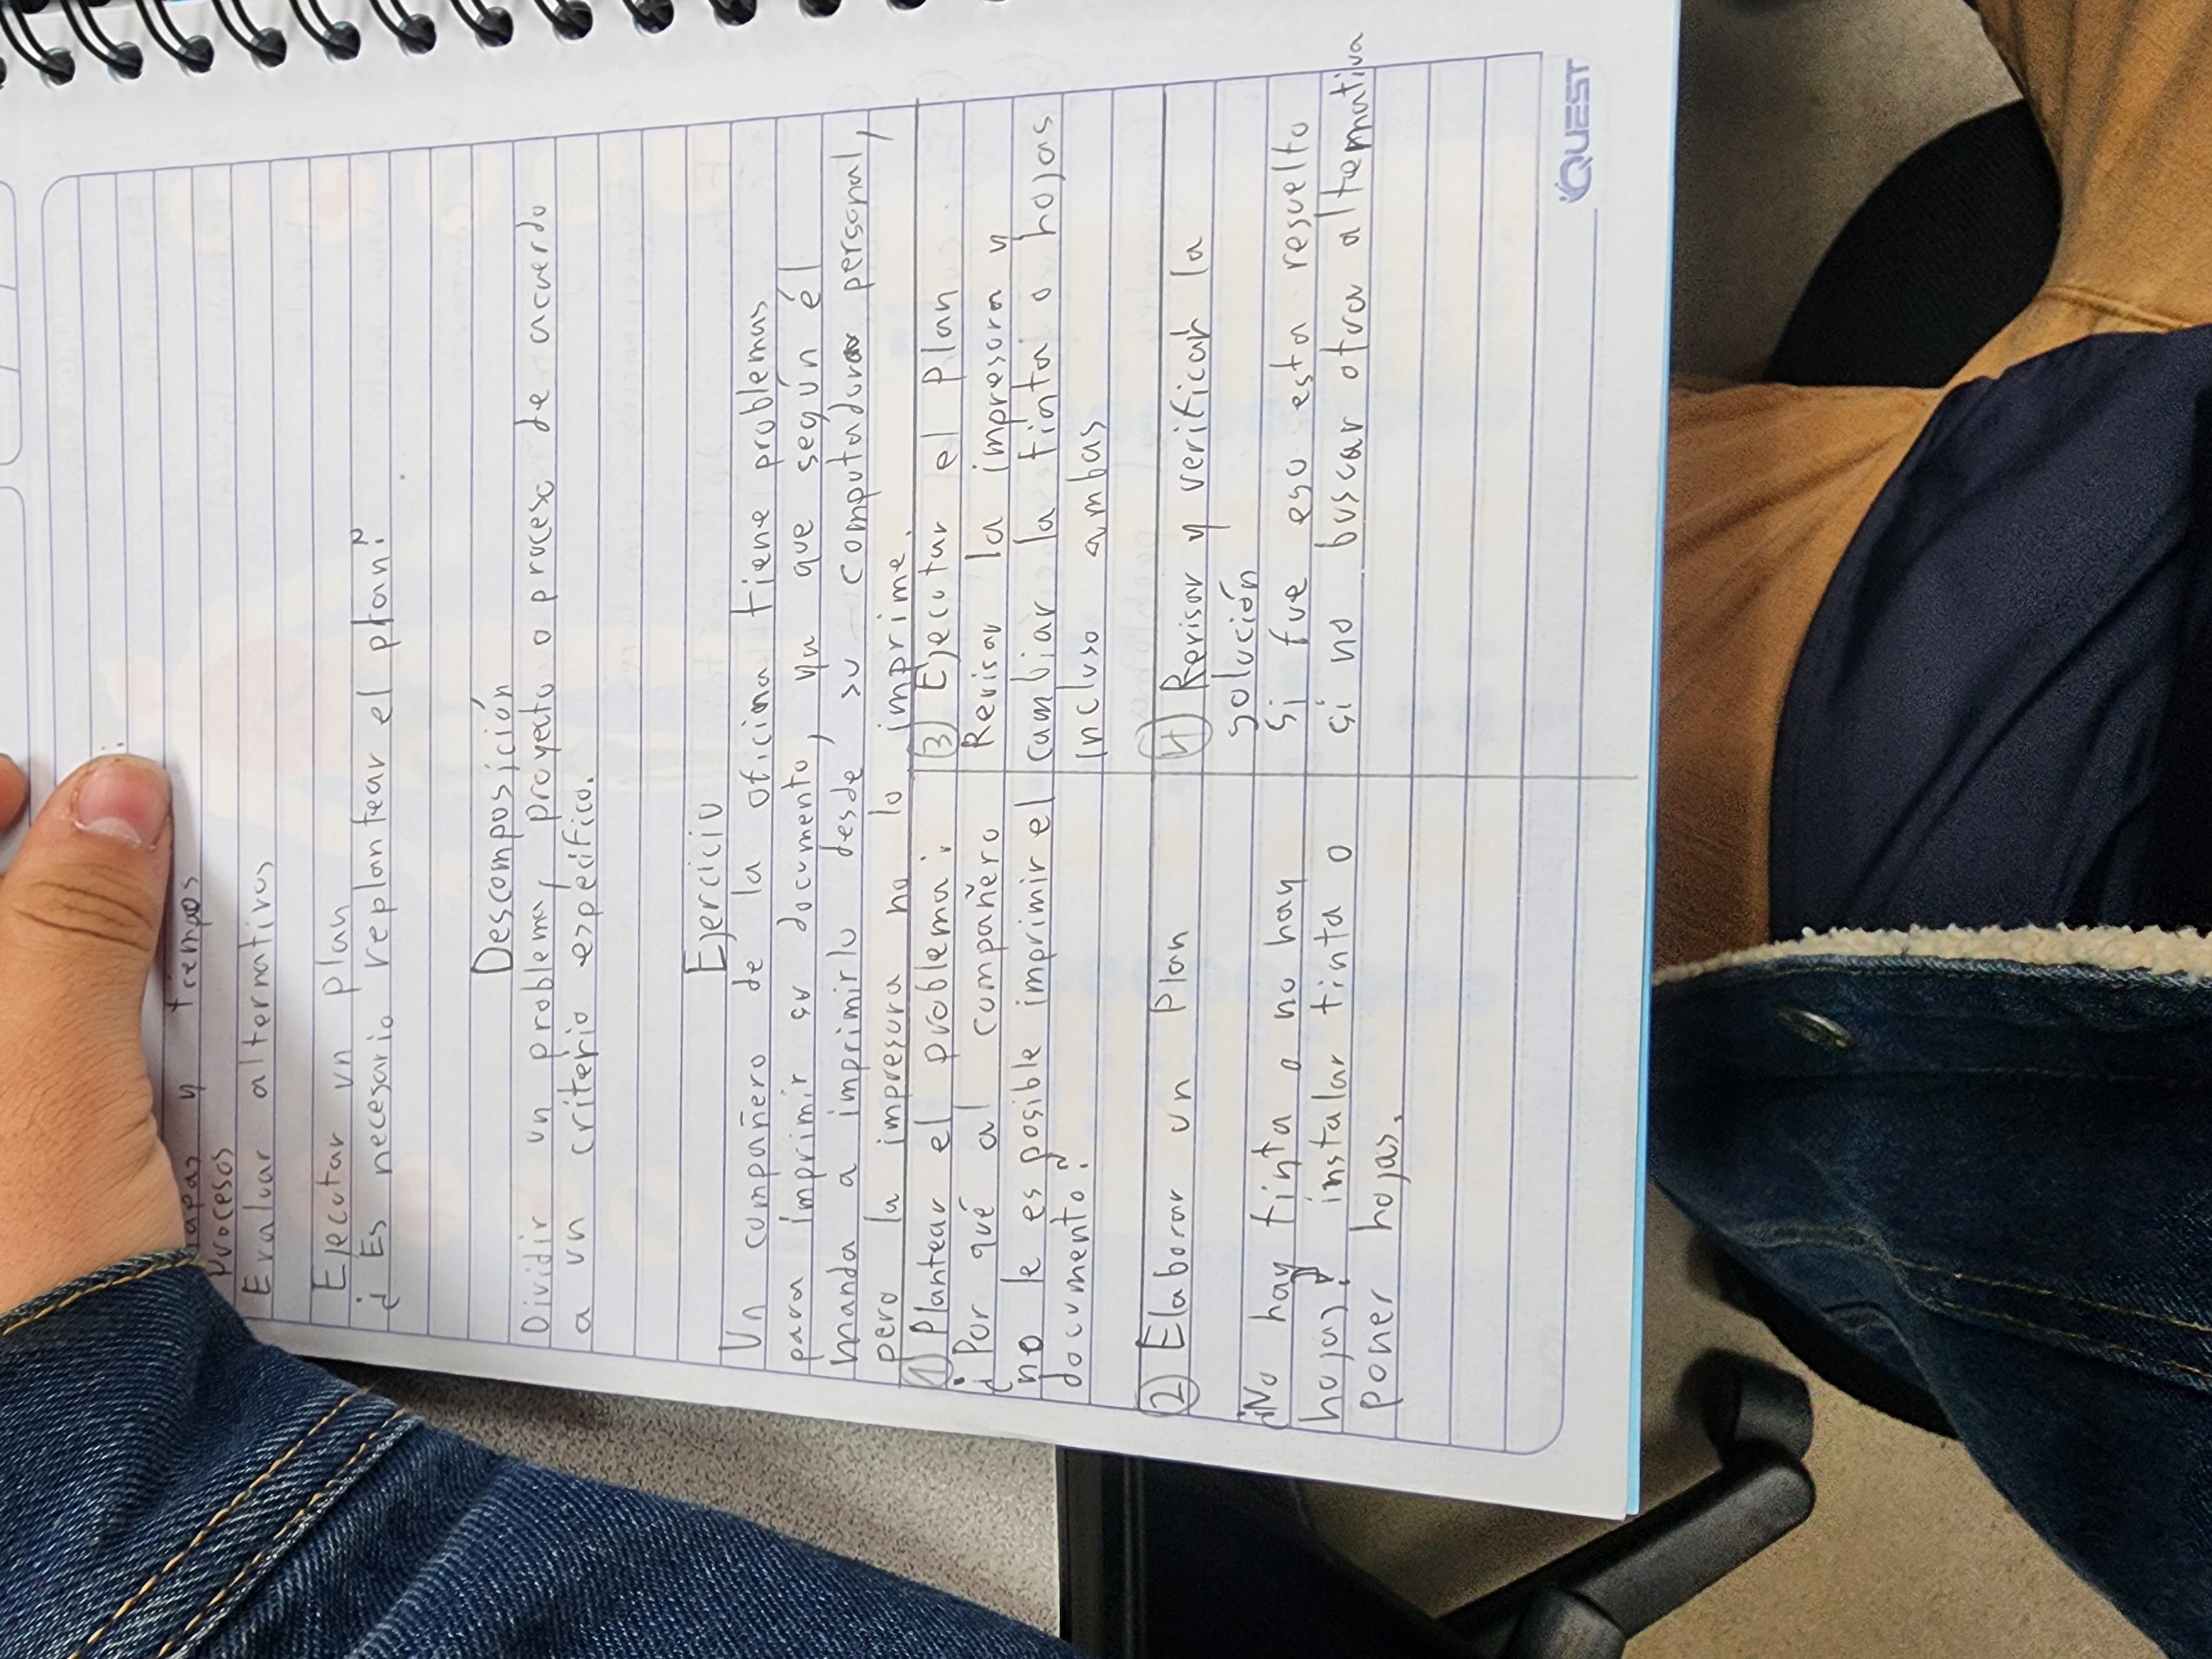 y tiempos
Procesos
Evaluar alternativas
Ejecutar un plan
¿Es necesario replantear el plan?
Descomposición
Dividir un problema, proyecto o proceso de acuerdo
a un criterio especifico.
Ejercicio
Un compañero de la oficina tiene problemas
para imprimir su documento, ya que según él
manda a imprimirlo desde su computadora personal,
pero la impresora no lo imprime.
① Plantear el problema:
¿Por qué al compañero
no le es posible imprimir el
documento?
② Elaborar un Plan
¿No hay tinta o no hay
hojas? instalar tinta o
poner hojas.
③ Ejecutar el Plan
Revisar la impresora y
cambiar la tinta o hojas
incluso ambas
④ Revisar y verificar la
solución
Si fue eso esta resuelto
si no buscar otra alternativa
QUEST